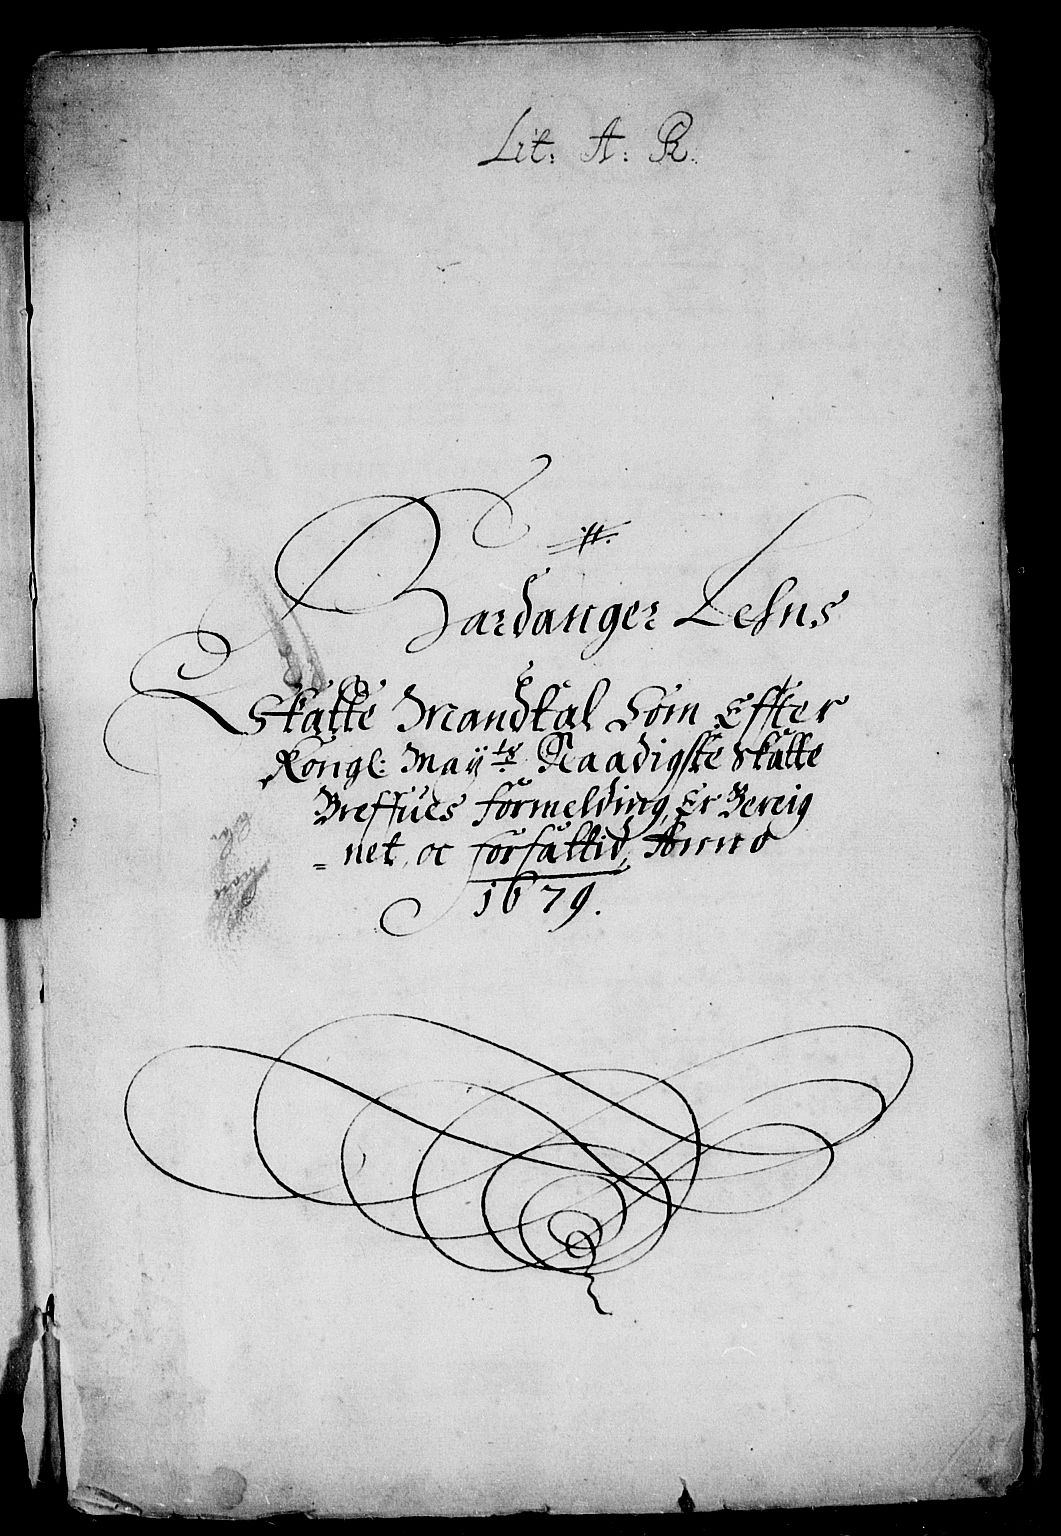 Lit: A: R.
Hardanger Lehns
Skatte Mandtal Som Effter
Kongl: May:ts Naadigste Skatte
Breffues formelding, Er Bereig
= net, oc forfattid, Anno
1679.